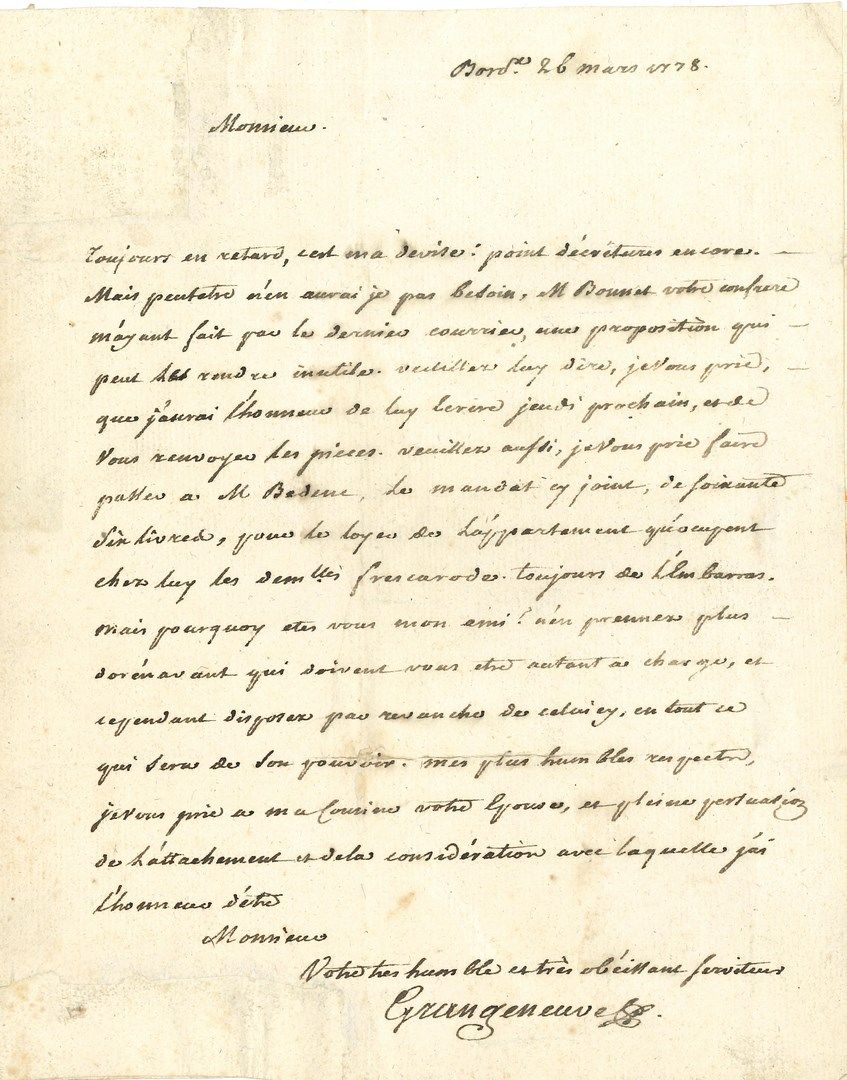 Bord.x 26 mars 1778.
Monsieur.
toujours en retard, c'est ma devise : point décritures encore. —
Mais peutetre n'en aurai je pas besoin, M Bonnet votre confrere
m'ayant fait par le dernier courrier, une proposition qui —
peut les rendre inutile. veuillez luy dire, je vous prie, —
que j'aurai l'honneur de luy Ecrire jeudi prochain, et de
Vous renvoyer les pieces. veuillez aussi, je vous prie faire
passer a M , le mandat cy joint, de soixante
dix livres, pour le loyer de l'appartement qu'ocupent
chez luy les demlles frescarode. toujours de l'Embarras.
Mais pourquoy etes vous mon ami ? n'en prennez plus —
dorénavant qui doivent vous etre autant a charge, et
cependant disposez par revanche de celuicy, en tout ce
qui sera de son pouvoir. mes plus humbles respects,
je vous prie a ma Cousine votre Epouse, et pleine persuasion
de l'attachement et de la considération avec laquelle j'ai
l'honneur d'étre
Monsieur
Votre tres humble et très obéissant serviteur
Grangeneuve